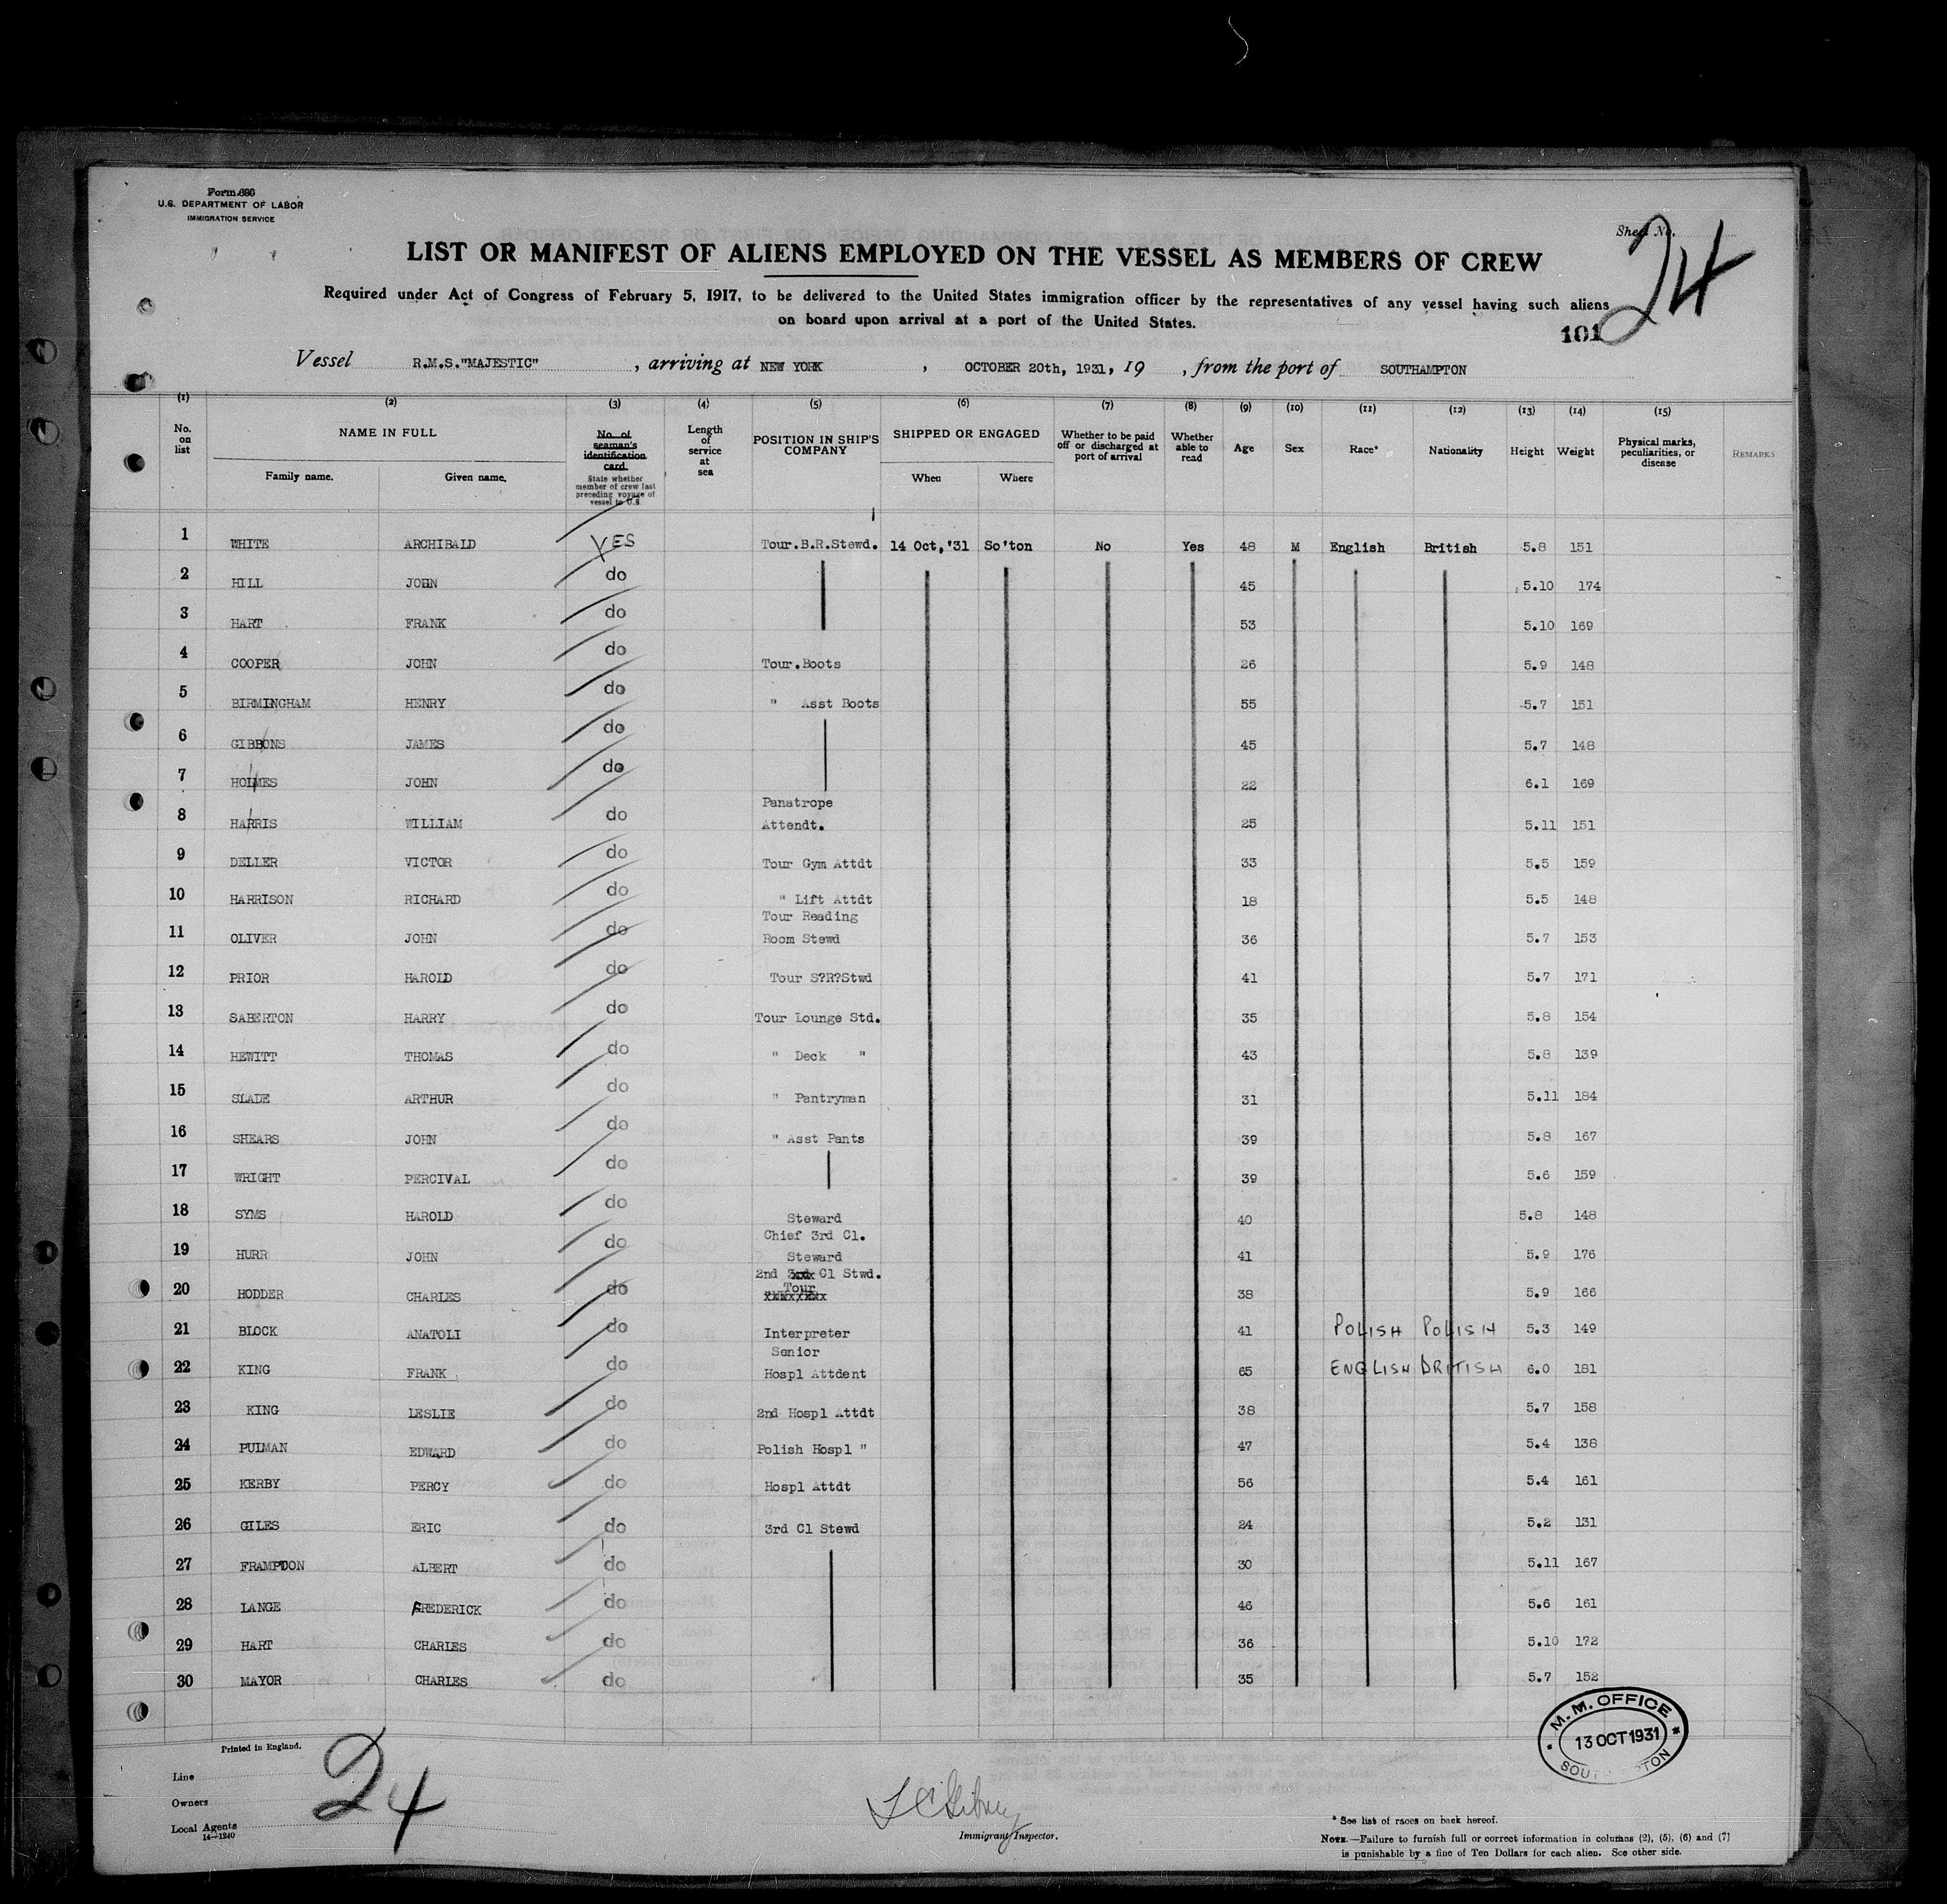 Form 680
U.S. DEPARTMENT OF LABOR
IMMIGRATION SERVICE
Sheet No. 24
LIST OR MANIFEST OF ALIENS EMPLOYED ON THE VESSEL AS MEMBERS OF CREW
Required under Act of Congress of February 5, 1917, to be delivered to the United States immigration officer by the representatives of any vessel having such aliens
on board upon arrival at a port of the United States.
101
Vessel R.M.S."MAJESTIC" , arriving at NEW YORK , OCTOBER 20th, 1931, 19 , from the port of SOUTHAMPTON
(1) (2) (3) (4) (5) (6) (7) (8) (9) (10) (11) (12) (13) (14) (15)
No. on list NAME IN FULL Family name. Given name. No. of seaman's identification card. State whether member of crew last preceding voyage of vessel to U.S. Length of service at sea POSITION IN SHIP'S COMPANY SHIPPED OR ENGAGED When Where Whether to be paid off or discharged at port of arrival Whether able to read Age Sex Race* Nationality Height Weight Physical marks, peculiarities, or disease REMARKS
1 WHITE ARCHIBALD YES Tour.B.R.Stewd. 14 Oct,'31 So'ton No Yes 48 M English British 5.8 151
2 HILL JOHN do 45 5.10 174
3 HART FRANK do 53 5.10 169
4 COOPER JOHN do Tour.Boots 26 5.9 148
5 BIRMINGHAM HENRY do " Asst Boots 55 5.7 151
6 GIBBONS JAMES do 45 5.7 148
7 HOLMES JOHN do 22 6.1 169
8 HARRIS WILLIAM do Panatrope Attendt. 25 5.11 151
9 DELLER VICTOR do Tour Gym Attdt 33 5.5 159
10 HARRISON RICHARD do " Lift Attdt 18 5.5 148
11 OLIVER JOHN do Tour Reading Room Stewd 36 5.7 153
12 PRIOR HAROLD do Tour S?R?Stwd 41 5.7 171
13 SABERTON HARRY do Tour Lounge Std. 35 5.8 154
14 HEWITT THOMAS do " Deck " 43 5.8 139
15 SLADE ARTHUR do " Pantryman 31 5.11 184
16 SHEARS JOHN do " Asst Pants 39 5.8 167
17 WRIGHT PERCIVAL do 39 5.6 159
18 SYMS HAROLD do Steward 40 5.8 148
19 HURR JOHN do Chief 3rd Cl. Steward 41 5.9 176
20 HODDER CHARLES do 2nd 3rd Cl Stwd. Tour 38 5.9 166
21 BLOCK ANATOLI do Interpreter 41 POLISH POLISH 5.3 149
22 KING FRANK do Senior Hospl Attdent 65 ENGLISH BRITISH 6.0 181
23 KING LESLIE do 2nd Hospl Attdt 38 5.7 158
24 PULMAN EDWARD do Polish Hospl " 47 5.4 138
25 KERBY PERCY do Hospl Attdt 56 5.4 161
26 GILES ERIC do 3rd Cl Stewd 24 5.2 131
27 FRAMPDON ALBERT do 30 5.11 167
28 LANGE FREDERICK do 46 5.6 161
29 HART CHARLES do 36 5.10 172
30 MAYOR CHARLES do 35 5.7 152
M.M. OFFICE
13 OCT 1931
Printed in England.
24
Line
Owners
Local Agents
14—1240
Immigrant Inspector.
* See list of races on back hereof.
NOTE.—Failure to furnish full or correct information in columns (2), (5), (6) and (7)
is punishable by a fine of Ten Dollars for each alien. See other side.